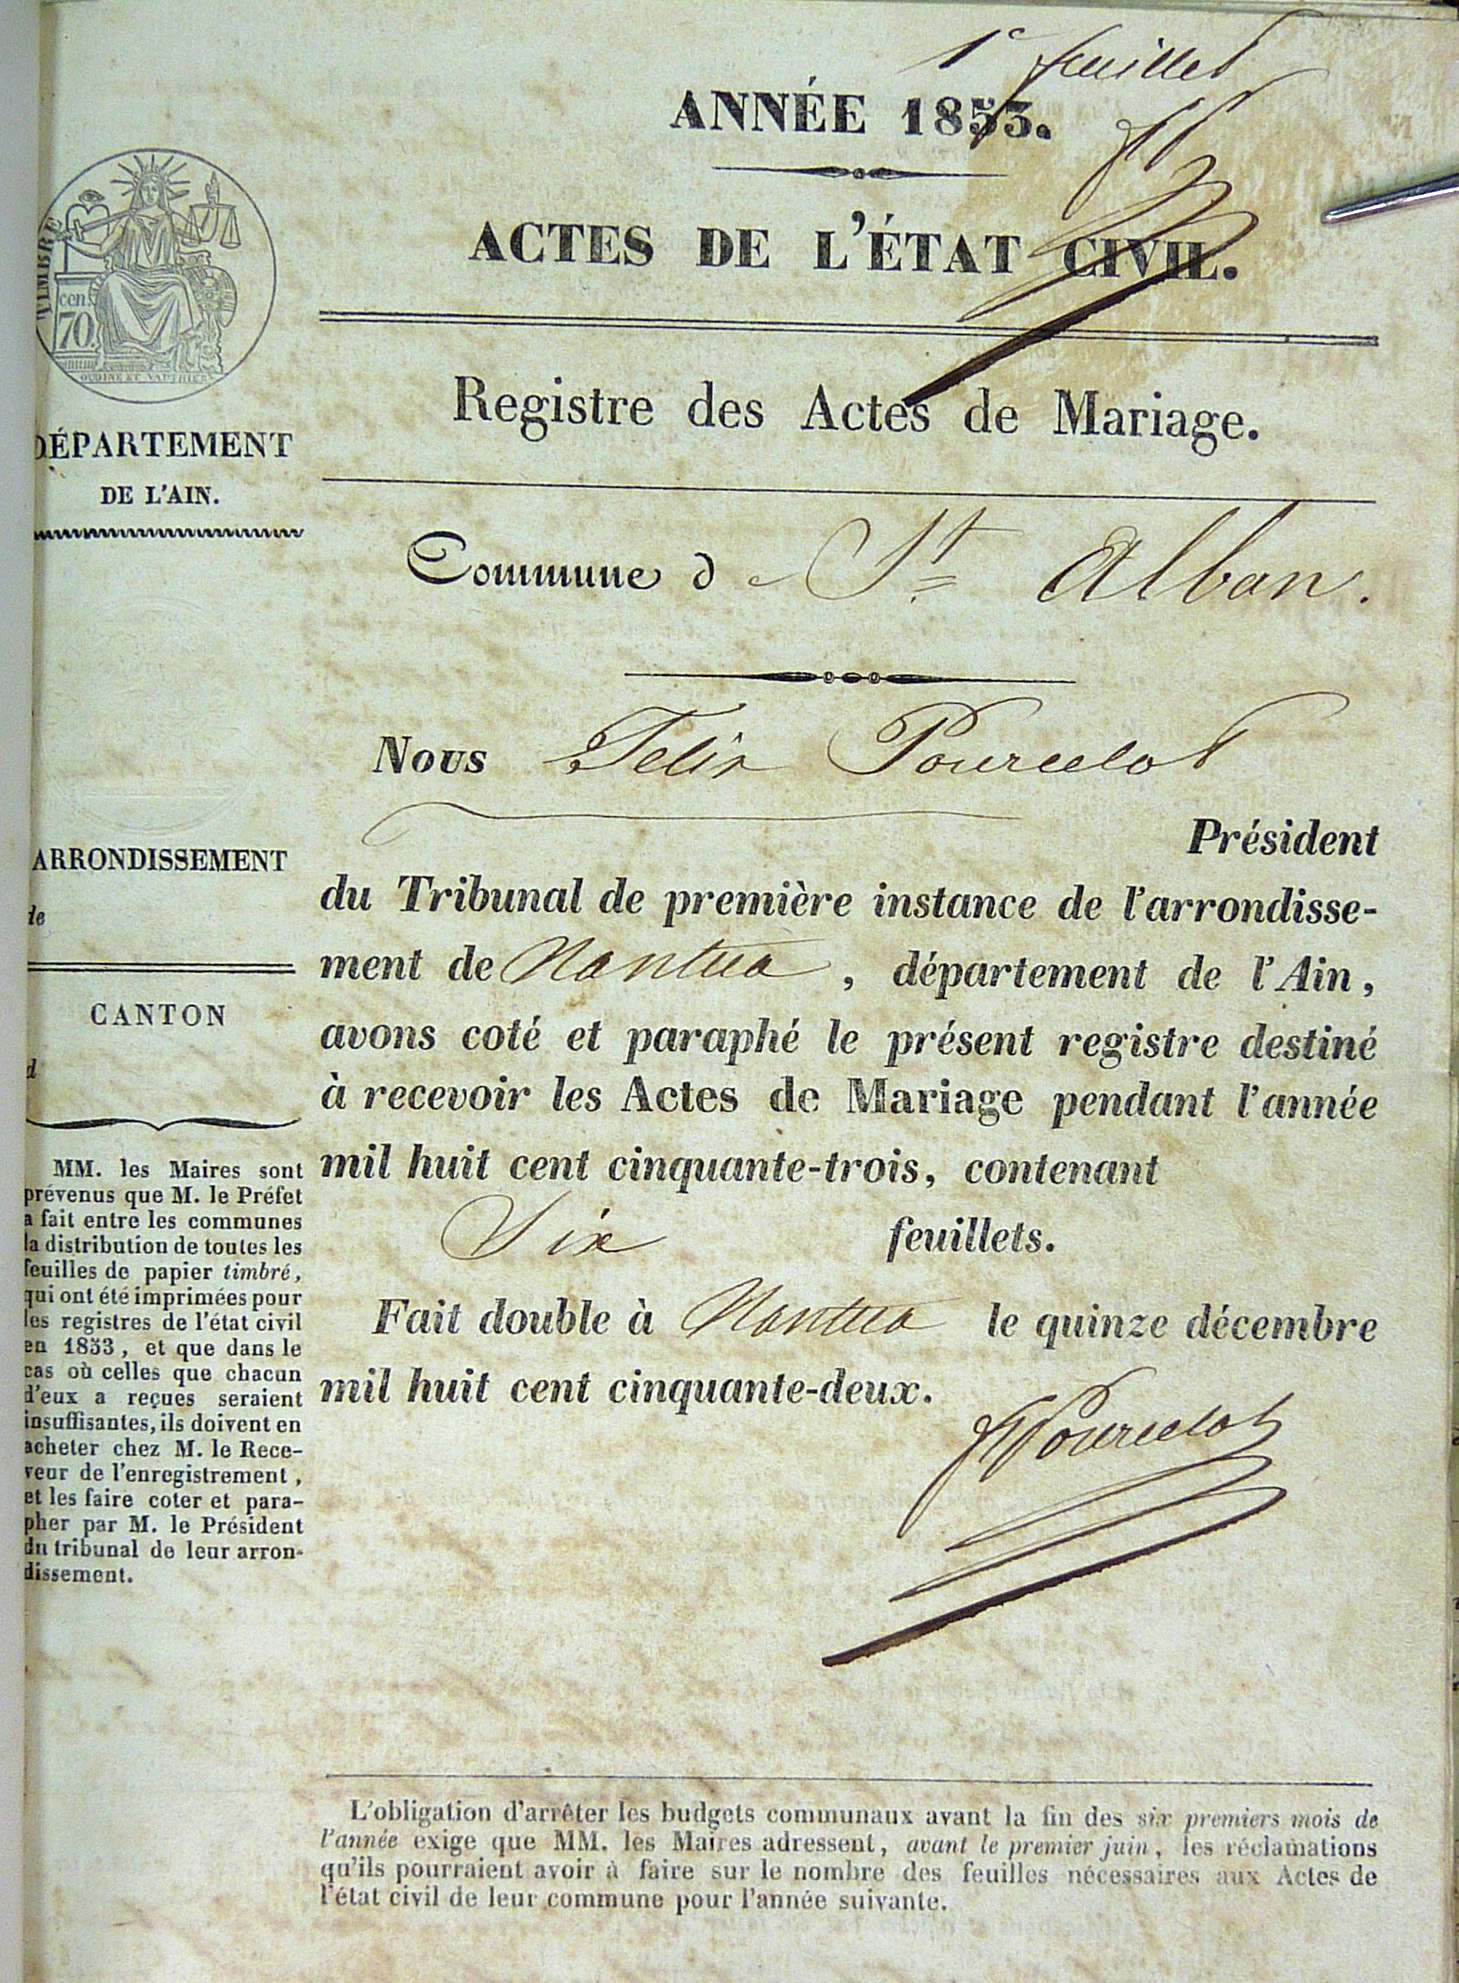 1e feuillet
ANNÉE 1853.
ACTES DE L'ÉTAT CIVIL.
Registre des Actes de Mariage.
TIMBRE
cen.
70
OUDINÉ ET
DÉPARTEMENT
DE L'AIN.
Commune de St Alban.
Nous Felix Pourcelot
Président
du Tribunal de première instance de l'arrondisse-
ment de Nantua, département de l'Ain,
avons coté et paraphé le présent registre destiné
à recevoir les Actes de Mariage pendant l'année
mil huit cent cinquante-trois, contenant
Six feuillets.
Fait double à Nantua le quinze décembre
mil huit cent cinquante-deux.
FPourcelot
ARRONDISSEMENT
de
CANTON
d
MM. les Maires sont
prévenus que M. le Préfet
a fait entre les communes
la distribution de toutes les
feuilles de papier timbré,
qui ont été imprimées pour
les registres de l'état civil
en 1853, et que dans le
cas où celles que chacun
d'eux a reçues seraient
insuffisantes, ils doivent en
acheter chez M. le Rece-
veur de l'enregistrement,
et les faire coter et para-
pher par M. le Président
du tribunal de leur arron-
dissement.
L'obligation d'arrêter les budgets communaux avant la fin des six premiers mois de
l'année exige que MM. les Maires adressent, avant le premier juin, les réclamations
qu'ils pourraient avoir à faire sur le nombre des feuilles nécessaires aux Actes de
l'état civil de leur commune pour l'année suivante.